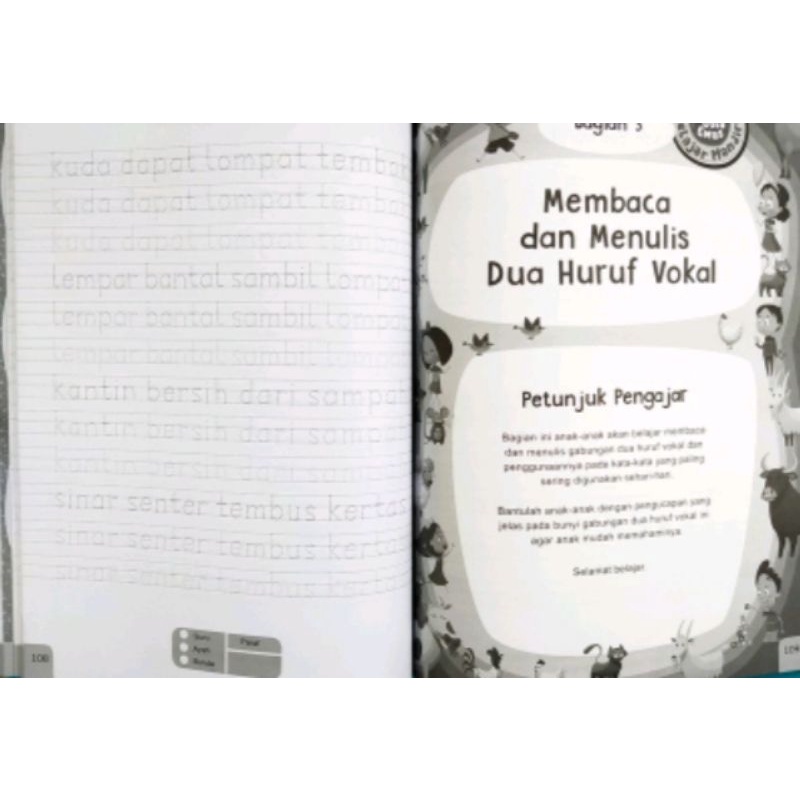 kuda dapat lompat tembar
kuda dapat lompat tembar
kuda dapat lompat tembar
lempar bantal sambil lompat
lempar bantal sambil lompat
lempar bantal sambil lompat
kantin bersih dari sampah
kantin bersih dari sampa
kantin bersih dari sampa
sinar senter tembus kertas
sinar senter tembus kertas
sinar senter tembus kertas
Guru
Ayah
Bunda
Paraf
108
Bagian 3
Belajar Mandiri
Membaca
dan Menulis
Dua Huruf Vokal
Petunjuk Pengajar
Bagian ini anak-anak akan belajar membaca
dan menulis gabungan dua huruf vokal dan
penggunaannya pada kata-kata yang paling
sering digunakan seharihari.
Bantulah anak-anak dengan pengucapan yang
jelas pada bunyi gabungan dua huruf vokal ini
agar anak mudah memahaminya.
Selamat belajar
109